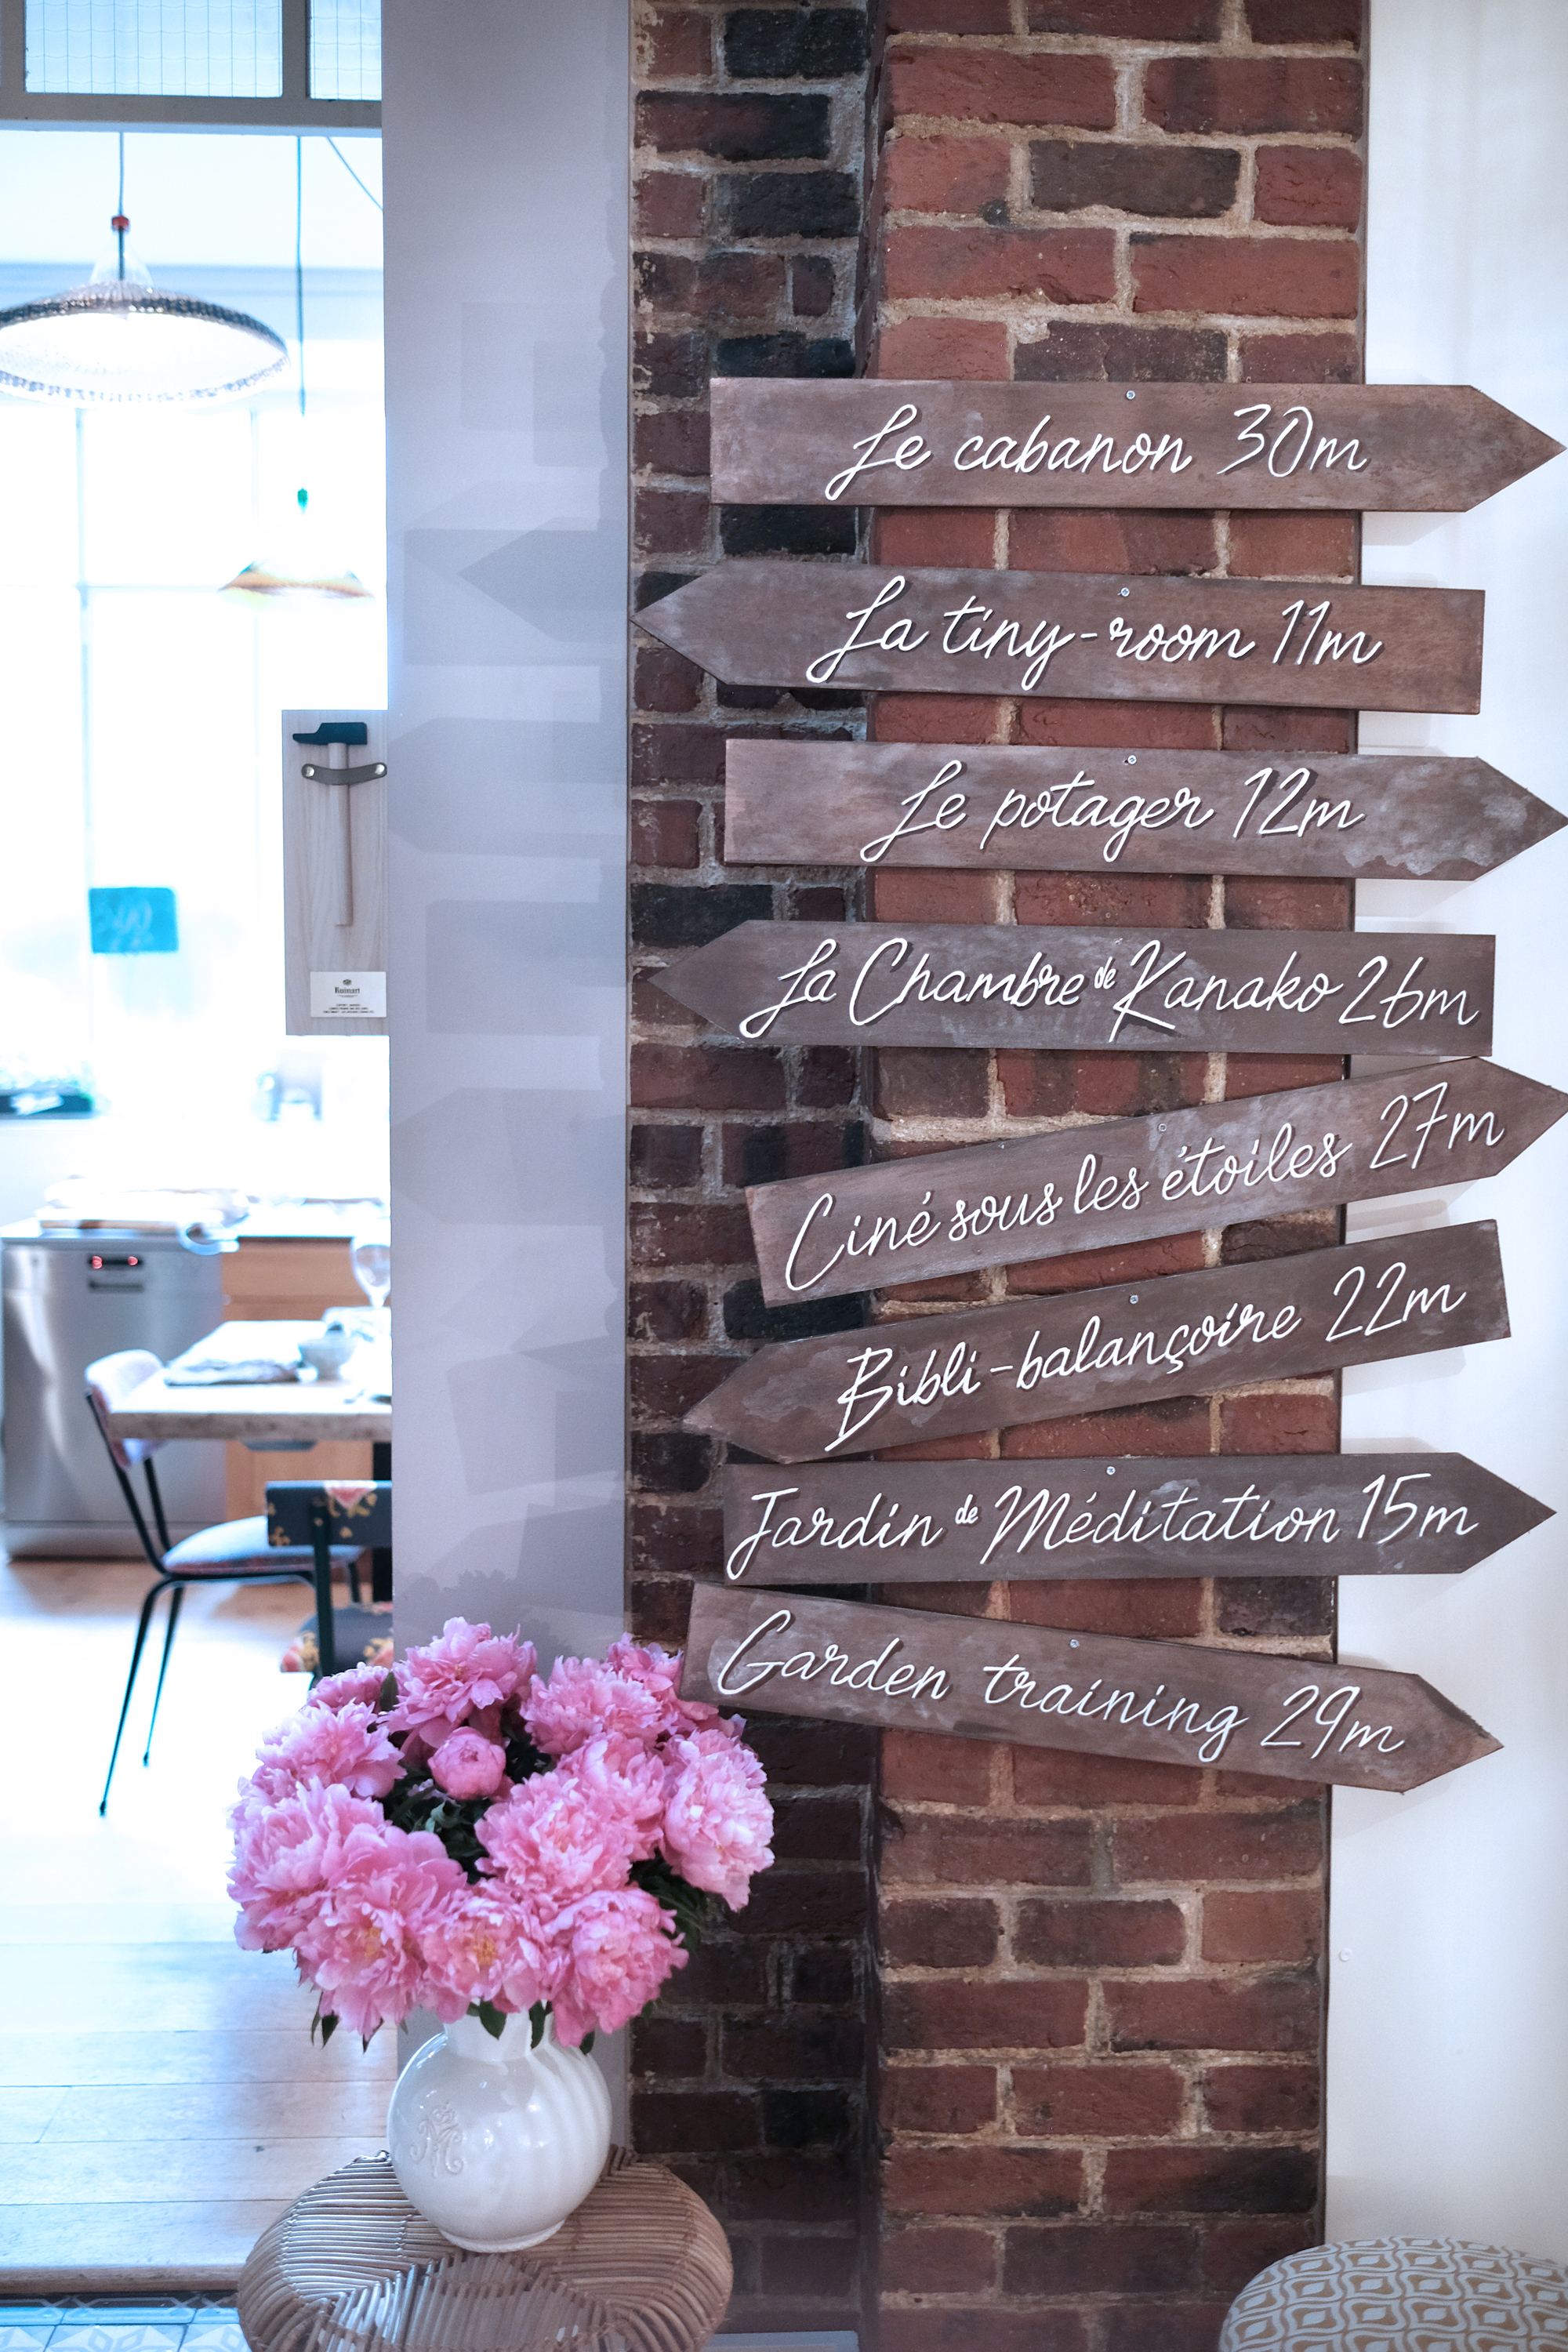 Le cabanon 30m
La tiny-room 11m
Le potager 12m
La Chambre de Kanako 26m
Ciné sous les étoiles 27m
Bibli-balançoire 22m
Jardin de Méditation 15m
Garden training 29m
Ruinart